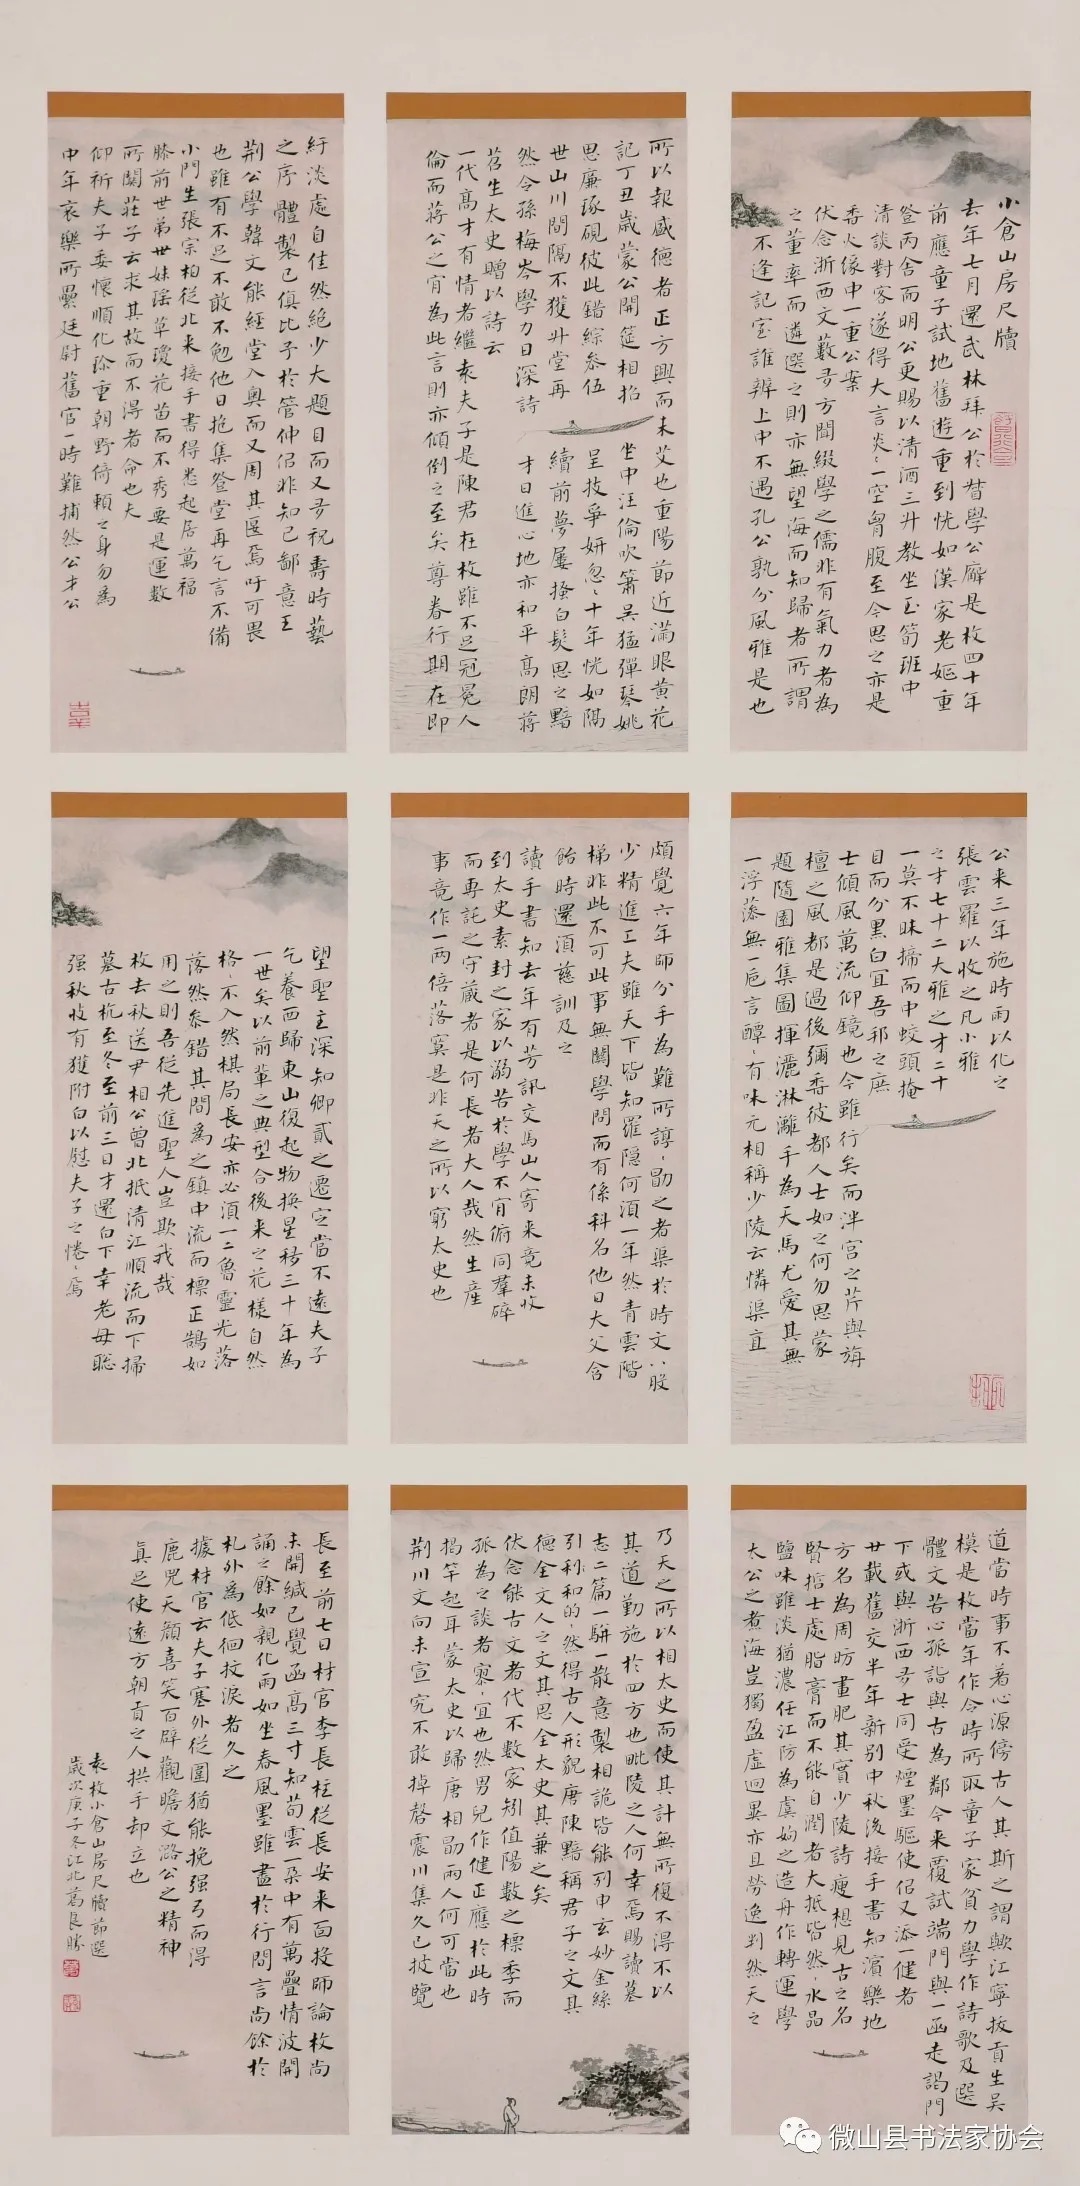 小倉山房尺牘
去年七月還武林拜公於督學公廨是枚四十年
前應童子試地舊遊重到恍如漢家老嫗重
登丙舍而明公更賜以清酒三升教坐玉筍班中
清談對客遂得大言炎炎一空胷腹至今思之亦是
香火緣中一重公案
伏念浙西文藪才方聞綴學之儒非有氣力者為
之董率而遴選之則亦無望海而知歸者所謂
不逢記室誰辨上中不遇孔公孰分風雅是也
所以報盛德者正方興而未艾也重陽節近滿眼黃花
記丁丑歲蒙公開筵相招
坐中汪倫吹簫吳猛彈琴姚
思廉琢硯彼此錯綜參伍
呈技爭妍忽忽十年恍如隔
世山川間隔不獲升堂再
續前夢屢搔白髮思之黯
然令孫梅岑學力日深詩
才日進心地亦和平高朗蔣
苕生太史贈以詩云
一代高才有情者繼袁夫子是陳君在枚雖不足冠冕人
倫而蔣公之肯為此言則亦傾倒之至矣尊眷行期在即
紆淡處自佳然絶少大題目而又多祝壽時藝
之序體製已俱比予於管仲侣非知己鄙意王
荆公學韓文能經堂入奧而又周其匽焉吁可畏
也雖有不足不敢不勉他日抱集登堂再乞言不備
小門生張宗柏從北來接手書得悉起居萬福
膝前世弟世妹瑶草瓊花苗而不秀要是運數
所關莊子云求其故而不得者命也夫
仰祈夫子委懷順化珍重朝野倚賴之身勿為
中年哀樂所壘廷尉舊官一時難捕然公才公
公来三年施時雨以化之
張雲羅以收之凡小雅
之才七十二大雅之才二十
一莫不昧掃而中蛟頭掩
目而分黑白宜吾邦之庶
士傾風萬流仰鏡也今雖行矣而泮宮之芹與旃
檀之風都是過後彌香彼都人士如之何勿思蒙
題隨園雅集圖揮灑淋灕手為天馬尤愛其無
一浮藻無一巵言醰醰有味元相稱少陵云憐渠直
頗覺六年師分手為難所諄諄勖之者渠於時文八股
少精進工夫雖天下皆知羅隱何須一年然青雲階
梯非此不可此事無關學問而有係科名他日大父含
飴時還須慈訓及之
讀手書知去年有芳訊交馬山人寄来竟未收
到太史素封之家以溺苦於學不肯俯同羣碎
而專託之守藏者是何長者大人哉然生產
事竟作一兩倍落寞是非天之所以窮太史也
望聖主深知卿貳之遷定當不遠夫子
乞養西歸東山復起物换星移三十年為
一世矣以前輩之典型合後来之花樣自然
格格不入然棋局長安亦必須一二魯靈光落
落然參錯其間為之鎮中流而標正鵠如
用之則吾從先進聖人豈欺我哉
枚去秋送尹相公曾北抵清江順流而下掃
墓古杭至冬至前三日才還白下幸老母聡
强秋收有獲附白以慰夫子之惓惓焉
道當時事不着心源傍古人其斯之謂歟江寧拔貢生吳
模是枚當年作令時所取童子家貧力學作詩歌及選
體文苦心孤詣與古為鄰今来覆試端門與一函走謁門
下或與浙西才士同受煙墨驅使侣又添一健者
廿載舊交半年新别中秋後接手書知濱樂地
方名為周昉畫肥其實少陵詩瘦想見古之名
賢摺士處脂膏而不能自潤者大抵皆然然水晶
鹽味雖淡猶濃任江防為虞姁之造舟作轉運學
太公之煮海豈獨盈虚迥異亦且勞逸判然天之
乃天之所以相太史而使其計無所復不得不以
其道勤施於四方也毗陵之人何幸焉賜讀墓
志二篇一駢一散意製相詭皆能列申玄妙金絲
引和和的的然得古人形貌唐陳黯稱君子之文其
德全文人之文其思全太史其兼之矣
伏念能古文者代不數家矧值陽數之標季而
孤為之談者寥寥宜也然男兒作健正應於此時
揭竿起耳蒙太史以歸唐相勖兩人何可當也
荆川文向未宣究不敢掉磬震川集久已披覽
長至前七日材官李長柱從長安来面投師諭枚尚
未開緘已覺函高三寸知荀雲一朶中有萬疊情波開
誦之餘如親化雨如坐春風墨雖盡於行間言尚餘於
札外為低徊抆淚者久之
據材官云夫子塞外從圍猶能挽强弓而得
鹿兕天顔喜笑百辟觀瞻文潞公之精神
真足使遠方朝貢之人拱手却立也
袁枚小倉山房尺牘節選
歲次庚子冬江北葛良勝
微山县书法家协会